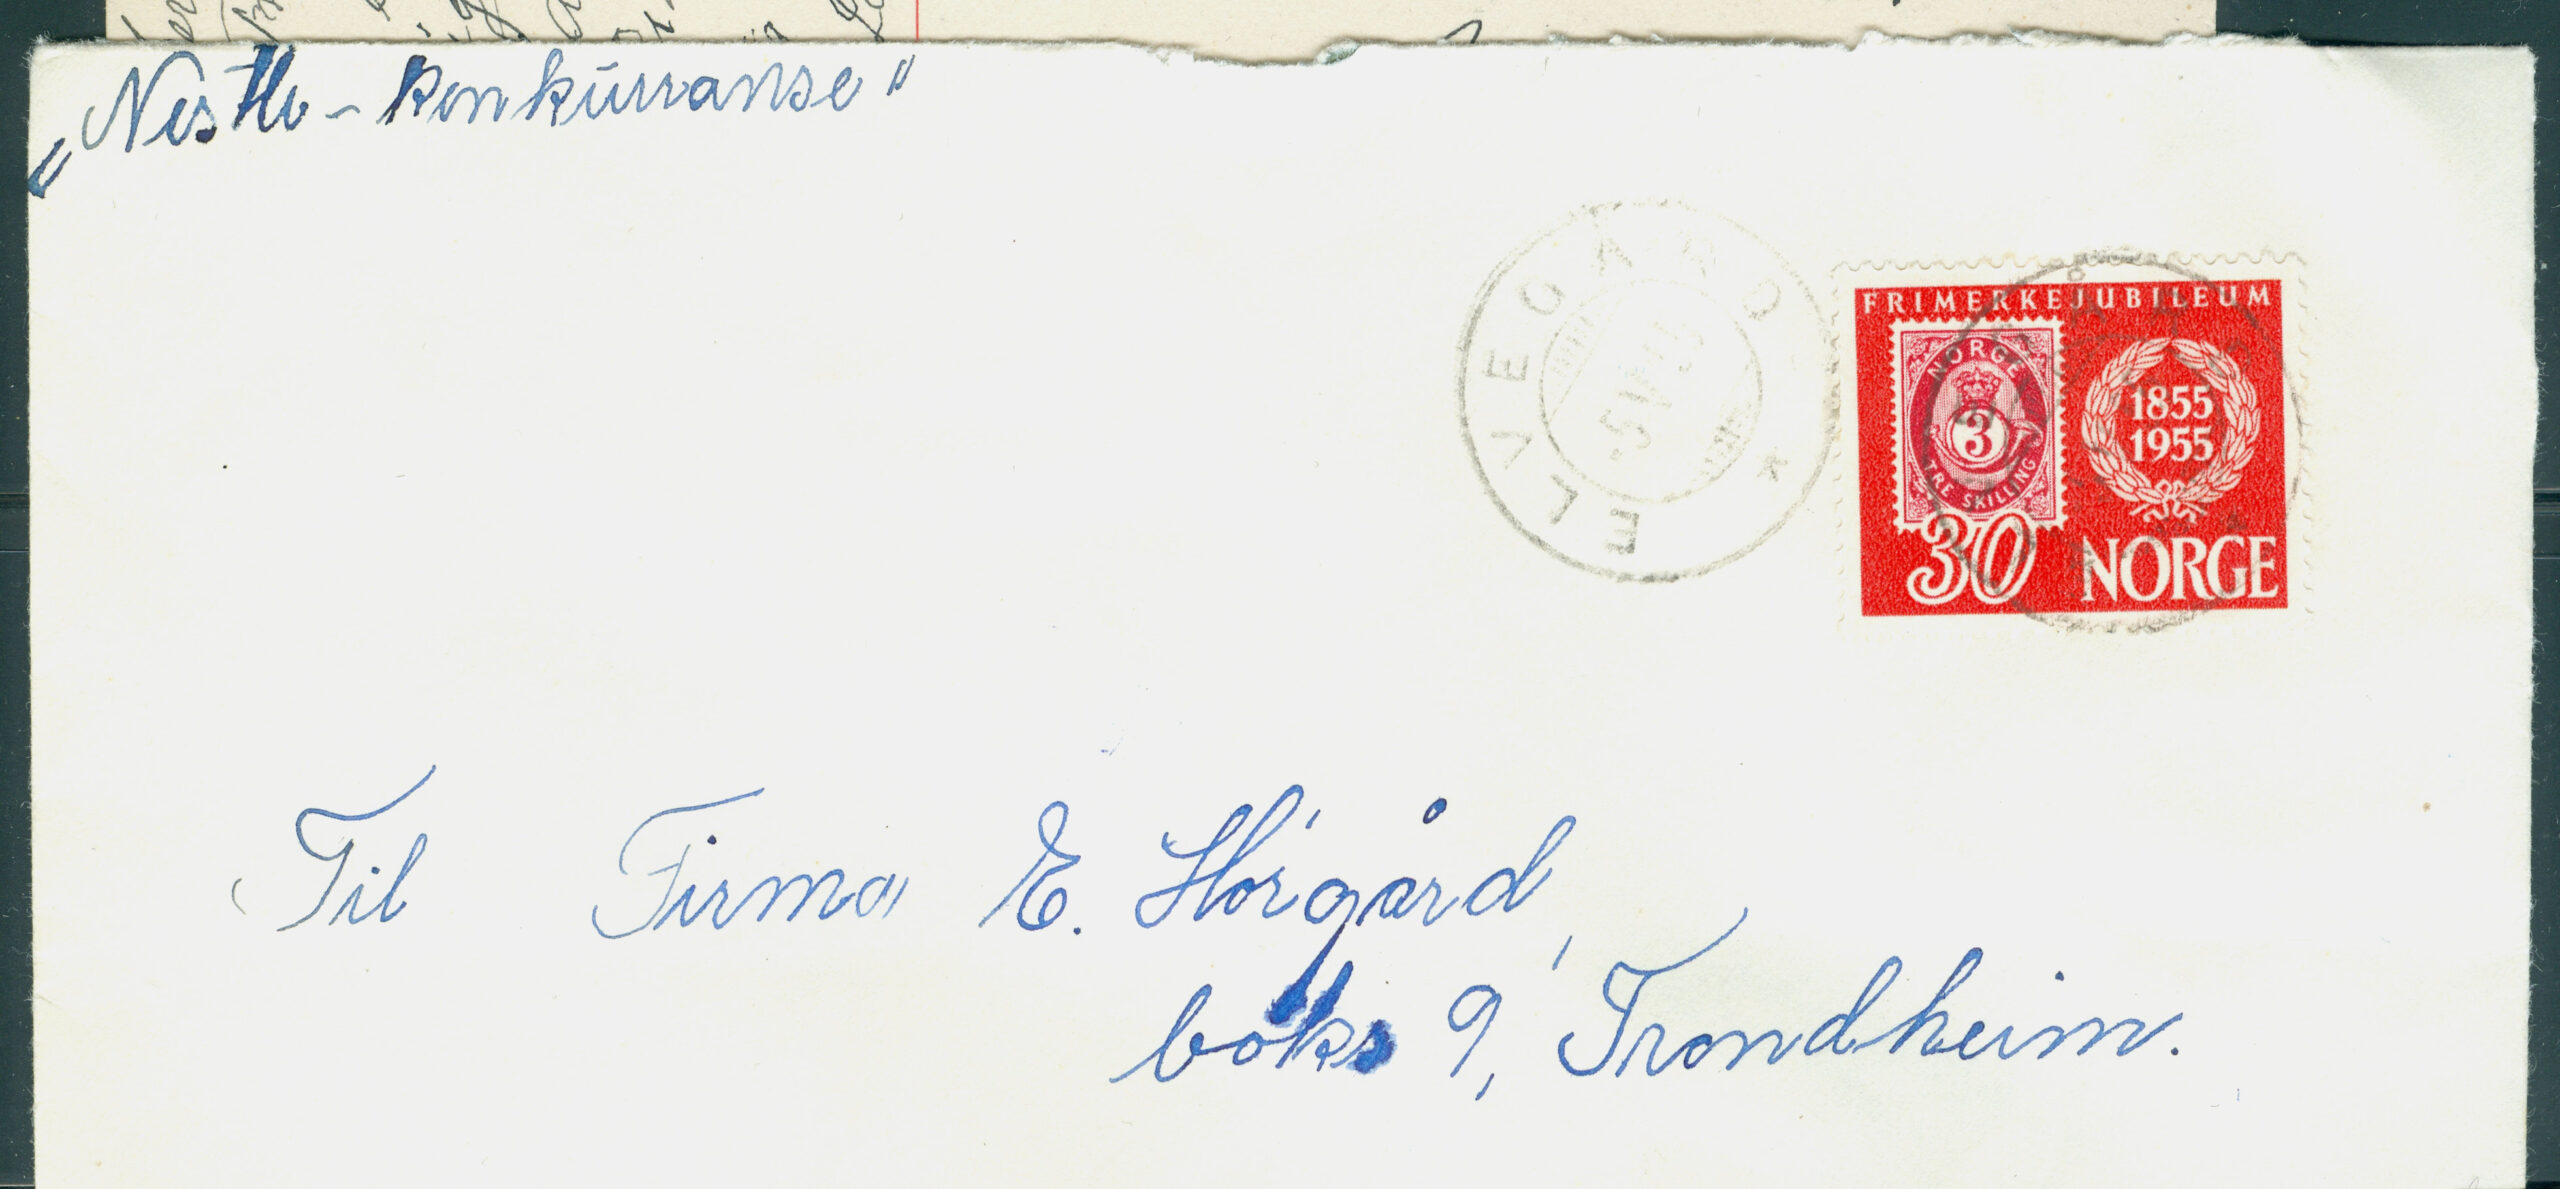 „Nestle - konkurranse"
ELVEGARD *
FRIMERKEJUBILEUM
NORGE
3
TRE SKILLING
1855
1955
30 NORGE
Til Firma E. Horgård,
boks 9, Trondheim.